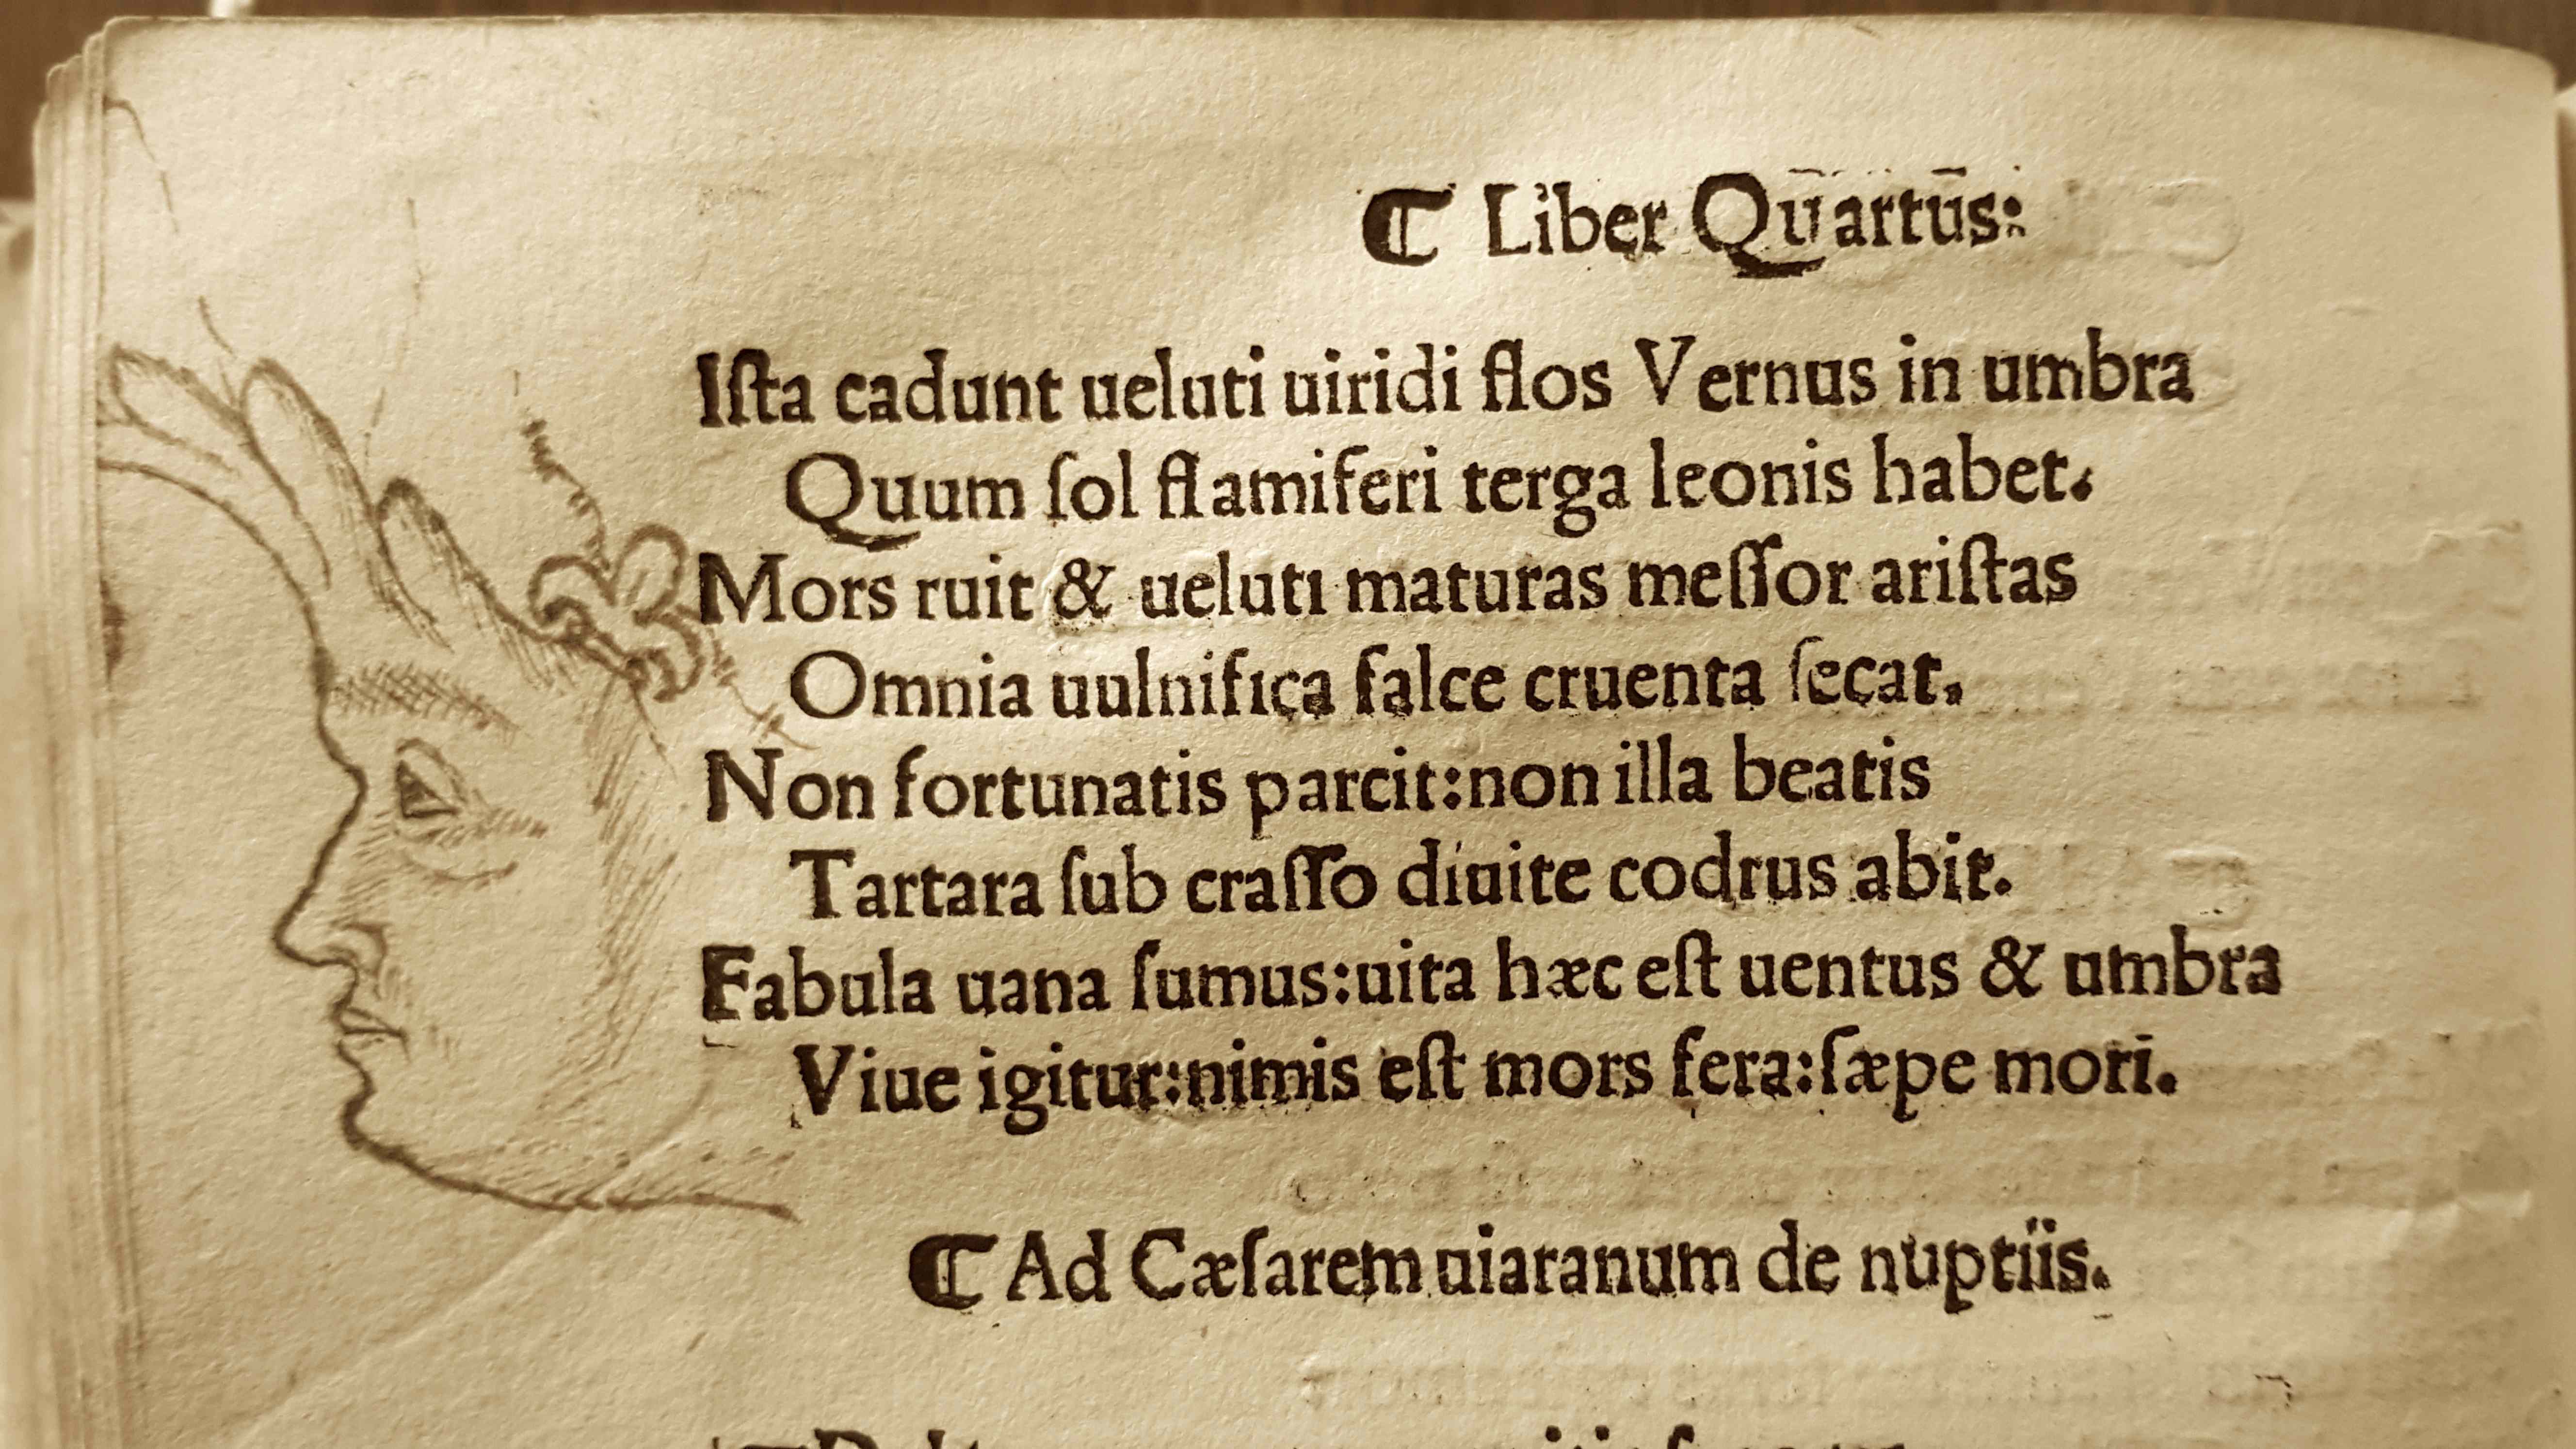 ℂ Liber Qūartūs:
Iſta cadunt ueluti uiridi flos Vernus in umbra
Quum ſol flamiferi terga leonis habet.
Mors ruit & ueluti maturas meſſor ariſtas
Omnia uulnifica falce cruenta ſecat.
Non fortunatis parcit:non illa beatis
Tartara ſub craſſo diuite codrus abit.
Fabula uana ſumus:uita hæc eſt uentus & umbra
Viue igitur:nimis eſt mors fera:ſæpe mori.
ℂ Ad Cæſarem uiaranum de nuptiis.